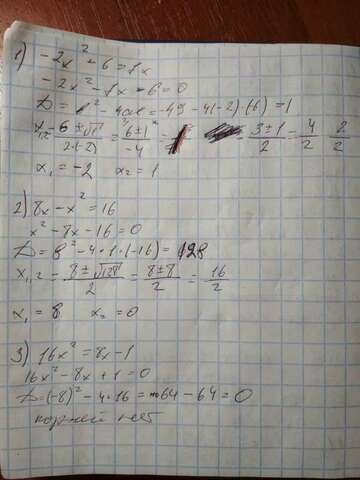 1) -2x² + 6 = 8x
-2x² - 8x - 6 = 0
D = b² - 4ac = 49 - 4(-2)·(6) = 1
x₁,₂ = 6 ± √1 / 2·(-2) = 6 ± 1 / -4 = = 3 ± 1 / 2 = 4 / 2 2 / 2
x₁ = -2 x₂ = 1
2) 8x - x² = 16
x² - 8x - 16 = 0
D = 8² - 4·1·(-16) = 128
x₁,₂ = 8 ± √128 / 2 = 8 ± 8 / 2 = 16 / 2
x₁ = 8 x₂ = 0
3) 16x² = 8x - 1
16x² - 8x + 1 = 0
D = (-8)² - 4·16 = 64 - 64 = 0
корней нет